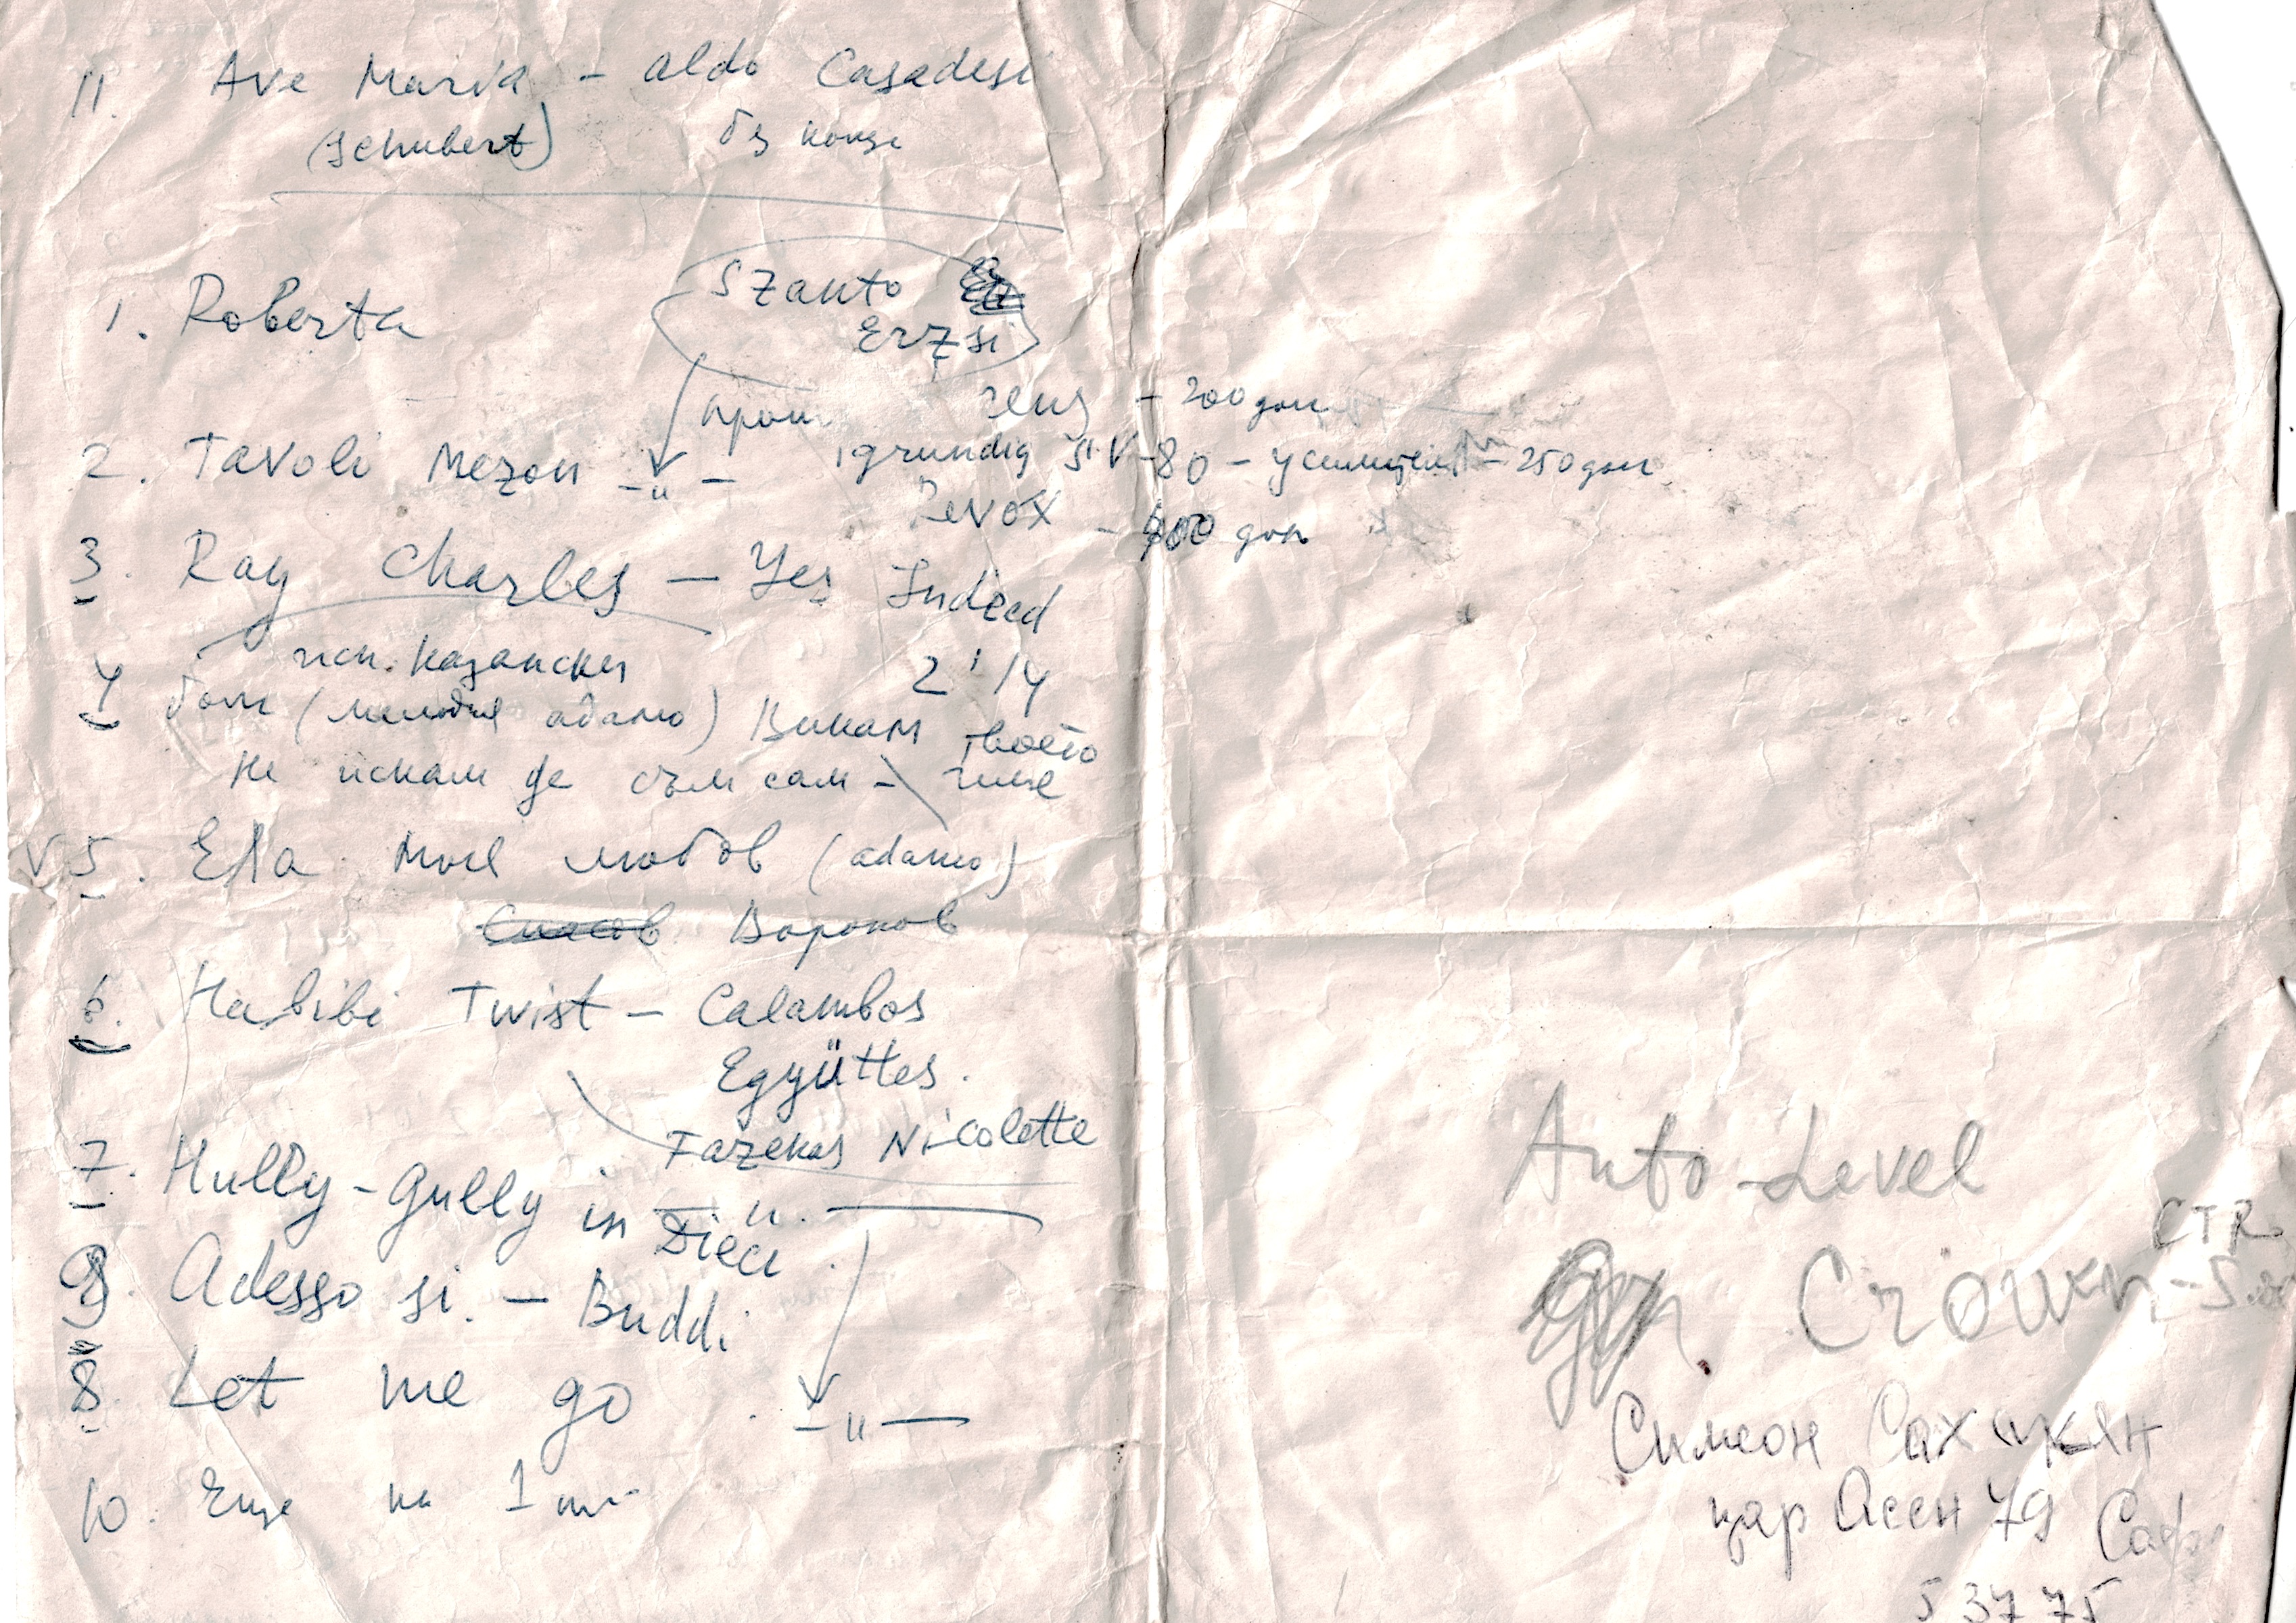 11. Ave Maria - aldo Casadesi
(Schubert)
Szanto
Erzsi
1. Roberta
- 200 дол
2. Tavoli Mezon - " -
grundig SV-80 - усилител - 250 дол
Revox - 400 дол
3. Ray Charles - Yes Indeed
исп. Казански 2'14
4 (мелодия адамо) Викам твоето
Не искам да съм сам - име
V 5. Ела моя любов (adamo)
Воронов
6. Habibi Twist - Calambos
Együttes.
Fazekas Nicolette
7. Hully-Gully in Dieci - " -
9. Adesso si. - Buddi
8. Let me go - " -
10. Още на 1
Auto-Level
CTR
Crown - 5
Симеон Сахакян
цар Асен 79 Соф
53775